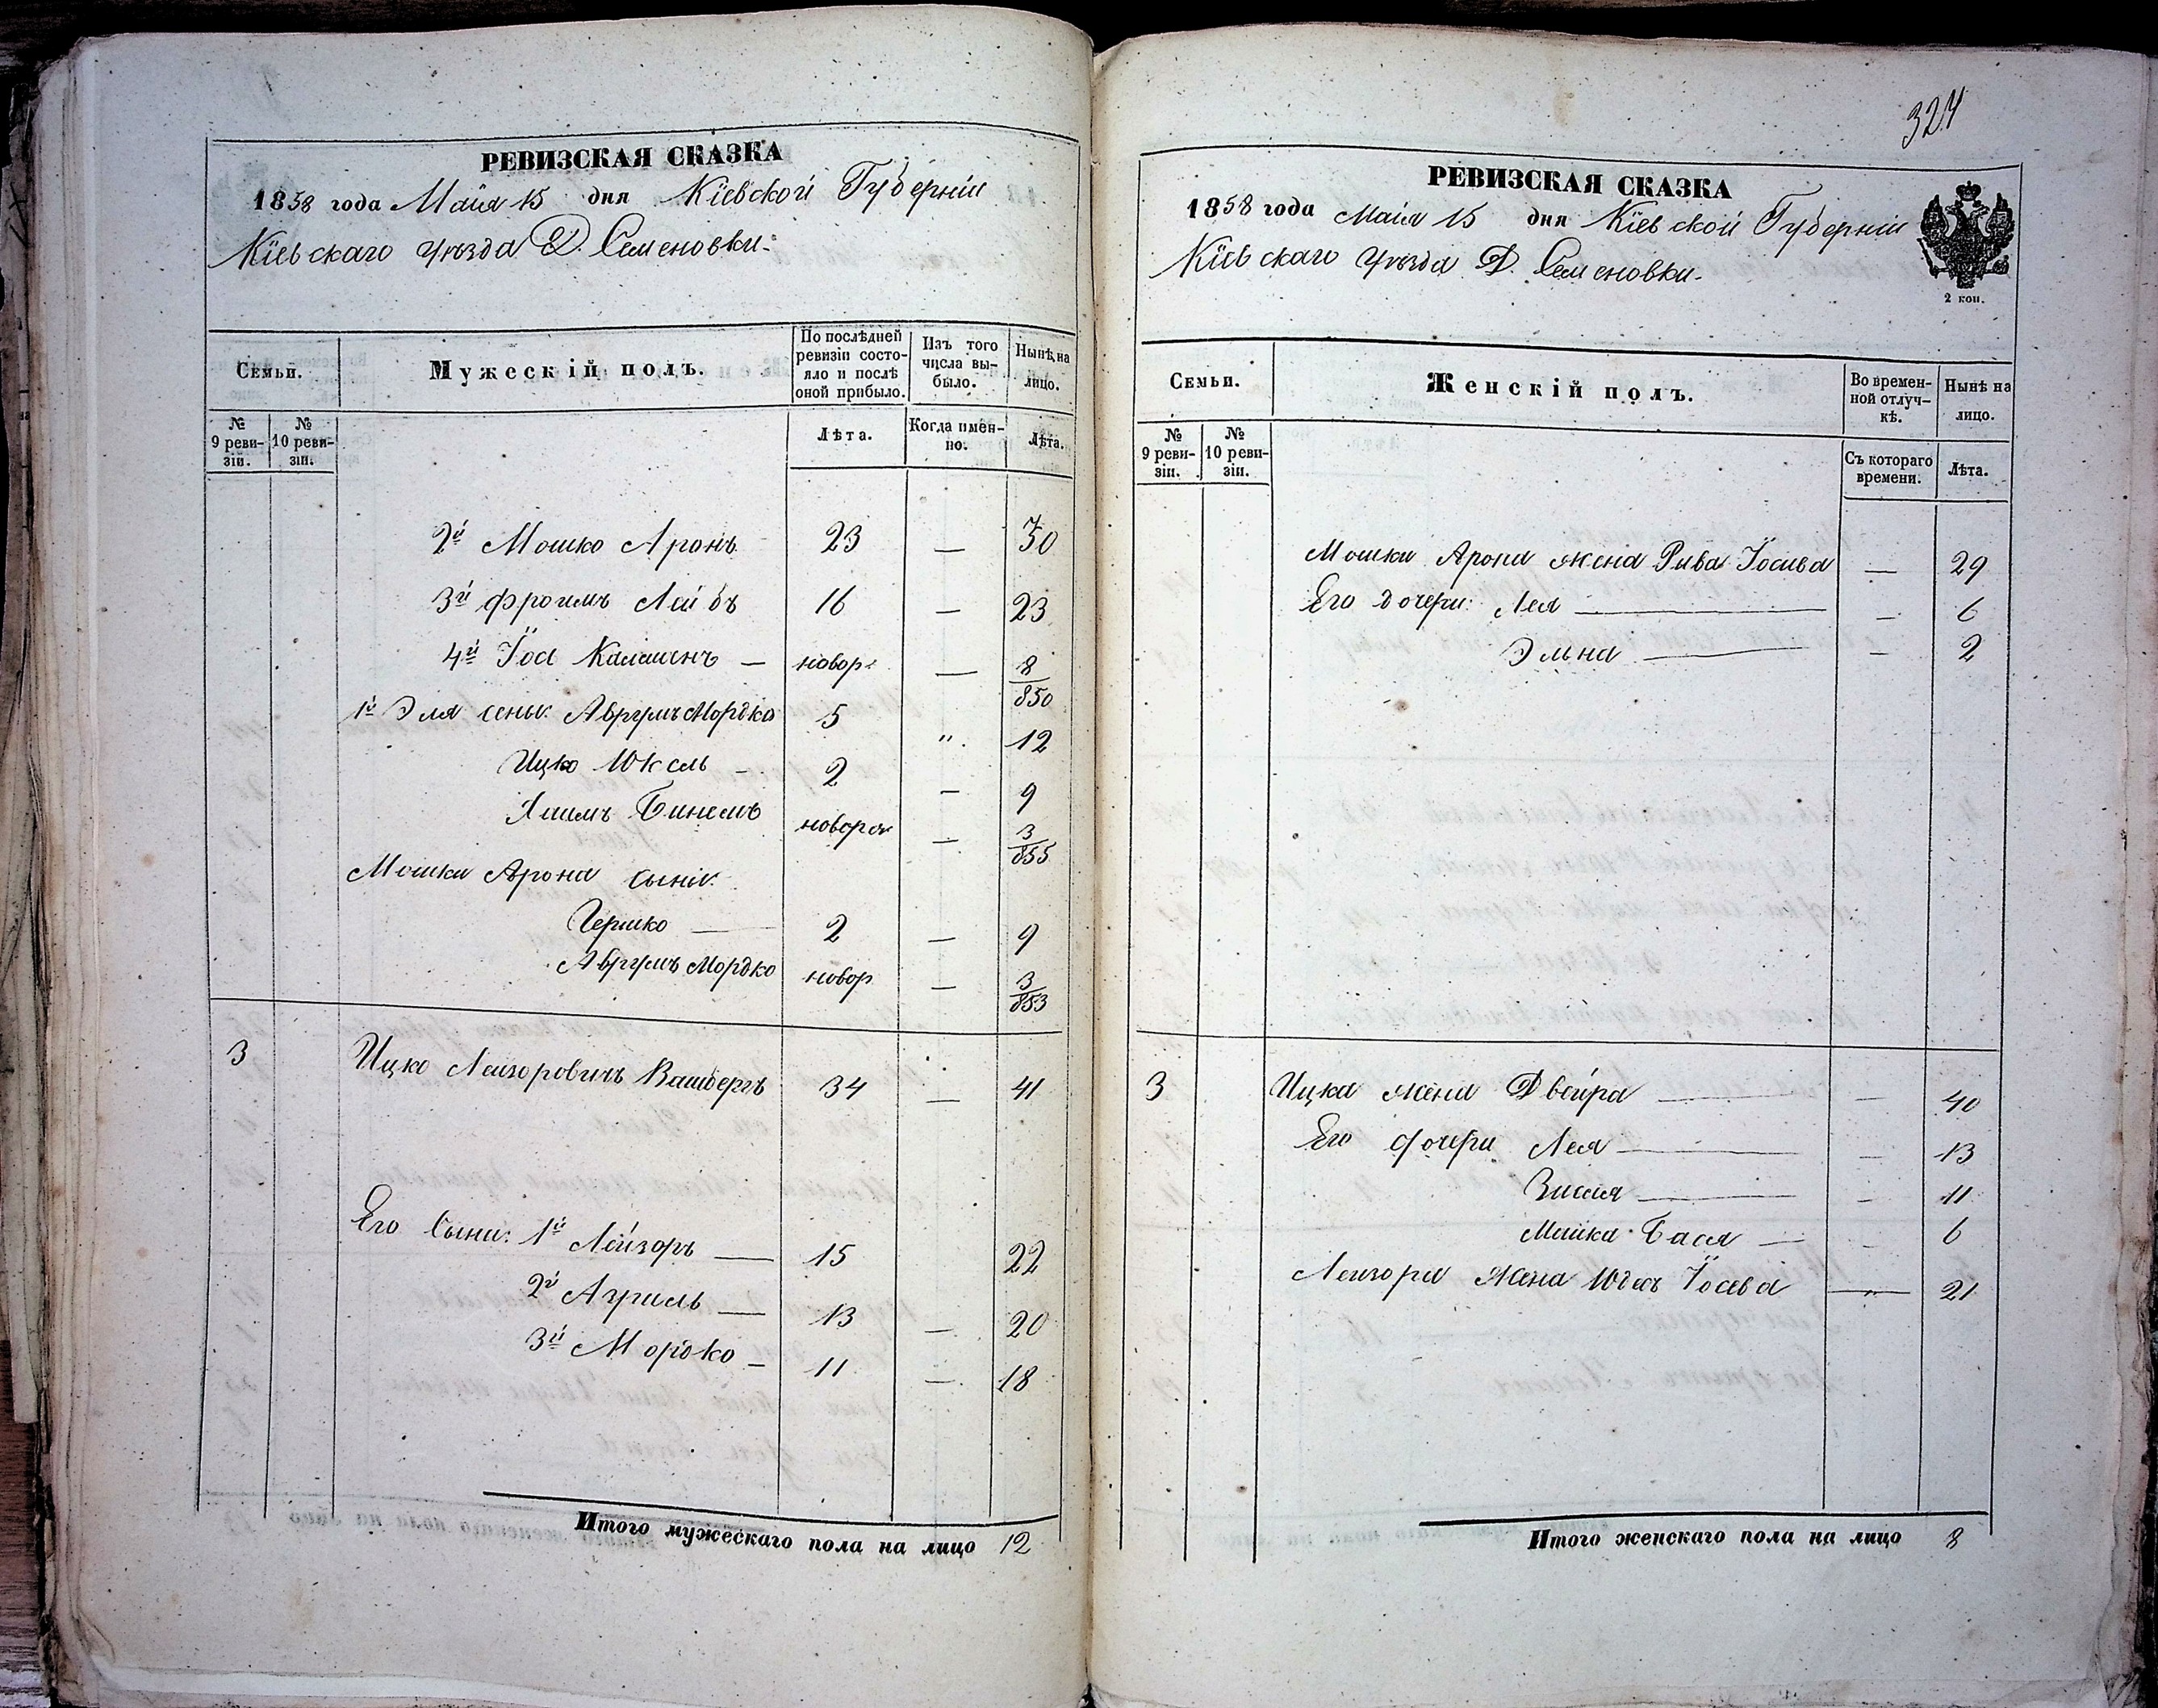 324
РЕВИЗСКАЯ СКАЗКА
1858 года Маія 15 дня Кіевской Губерніи
Кіевскаго Уѣзда Д. Семеновки.
Семьи.
Мужескій полъ.
По послѣдней ревизіи состояло и послѣ оной прибыло.
Изъ того числа выбыло.
Нынѣ на лицо.
№ 9 ревизіи.
№ 10 ревизіи.
Лѣта.
Когда именно.
Лѣта.
2й Мошко Аронъ 23 — 30
3й Фроимъ Лейбъ 16 — 23
4й Іось Калманъ — новор. — 8/850
1й Эля сыны. Аврумъ Мордко 5 " 12
Ицко Юкель — 2 — 9
Хаимъ Бинемъ новорож — 3/855
Мошки Арона сыны.
Гершко — 2 — 9
Аврумъ Мордко новор — 3/853
3 Ицко Лейзоровичъ Вайсбергъ 34 — 41
Его сыны: 1й Лейзоръ — 15 22
2й Азриель — 13 — 20
3й Мордко — 11 — 18
Итого мужескаго пола на лицо 12
РЕВИЗСКАЯ СКАЗКА
1858 года Маія 15 дня Кіевской Губерніи
Кіевскаго Уѣзда Д. Семеновки.
2 коп.
Семьи.
Женскій полъ.
Во временной отлучкѣ.
Нынѣ на лицо.
№ 9 ревизіи.
№ 10 ревизіи.
Съ котораго времени.
Лѣта.
Мошки Арона жена Рива Іосива — 29
Его дочери: Лея — — 6
Элька — — 2
3 Ицка жена Двейра — — 40
Его дочери Лея — — 13
Зисля — — 11
Малка Бася — — 6
Лейзора жена Іосева — " — 21
Итого женскаго пола на лицо 8